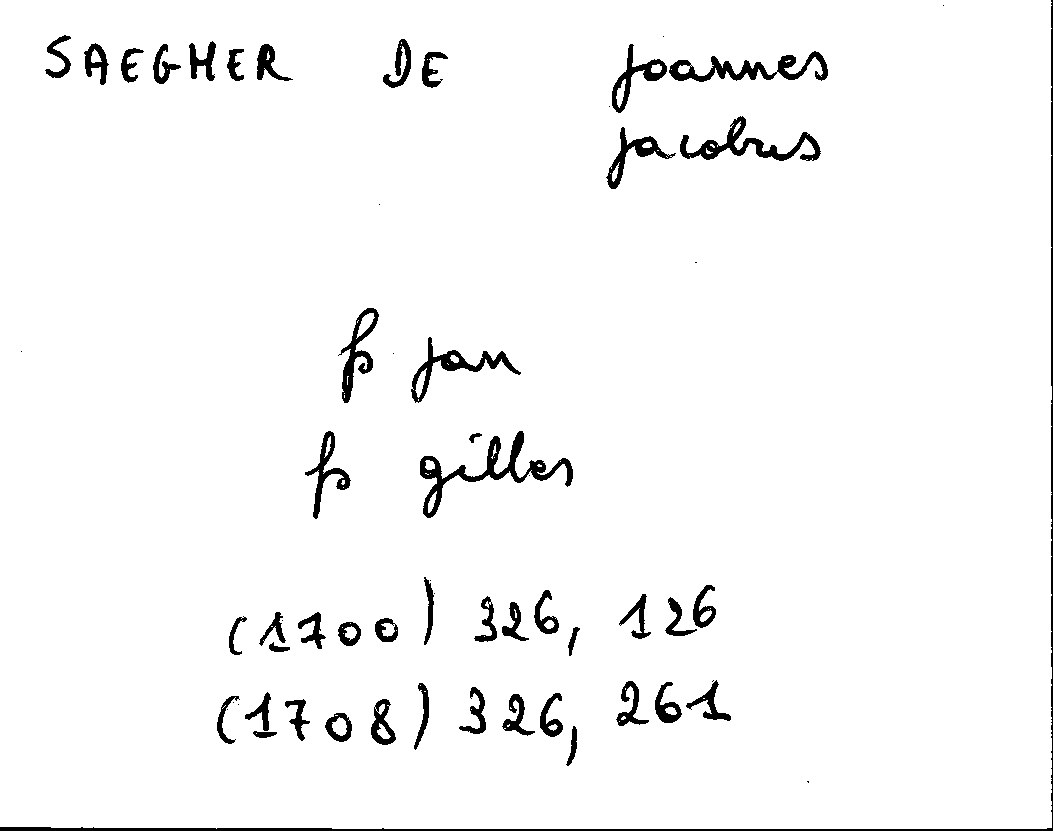 SAEGHER DE Joannes
Jacobus
fs Jan
fs Gilles
(1700) 326, 126
(1708) 326, 261